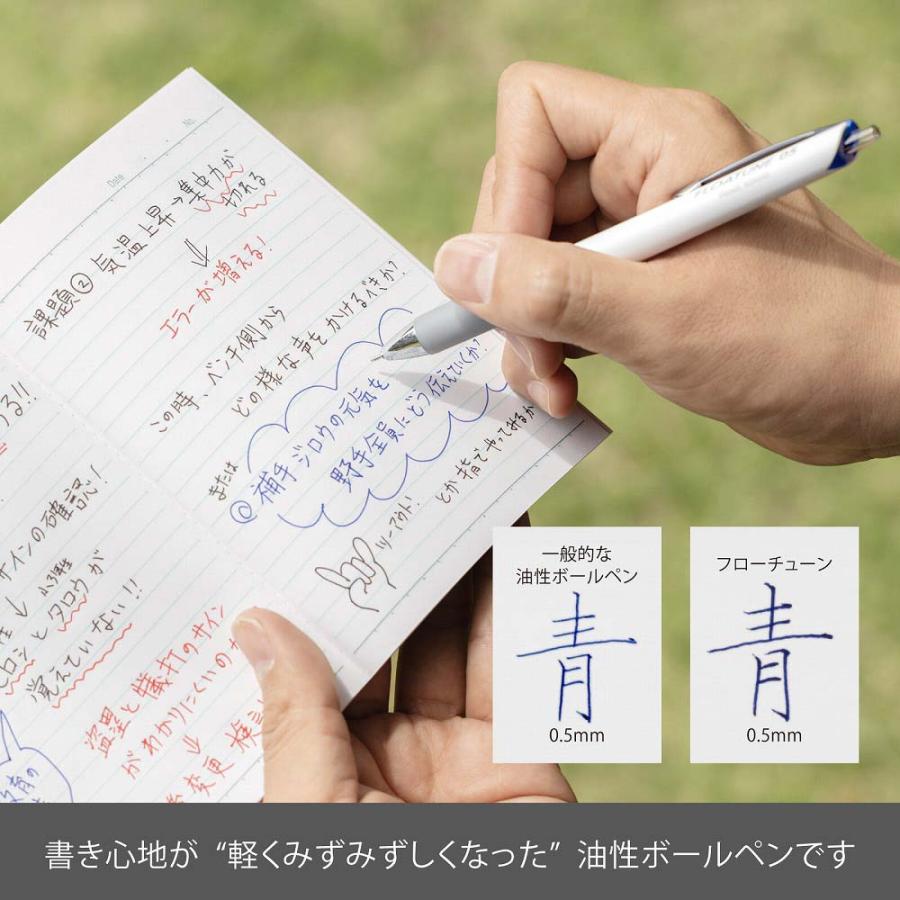 No.
Date
課題② 気温上昇→集中力が
切れる
エラーが増える!
この時、ベンチ側から
どの様な声をかけるべきか?
または
@ 補手ジロウの元気を
野手全員にどう伝えていくか?
ツーアウト!
とか指でやってみるか
うる!!
サインの確認!
ヒロシとタロウが
覚えていない!!
盗塁と犠打のサイン
がわかりにくいの
変更
FLOATUNE 05
一般的な
油性ボールペン
青
0.5mm
フローチューン
青
0.5mm
書き心地が “軽くみずみずしくなった” 油性ボールペンです